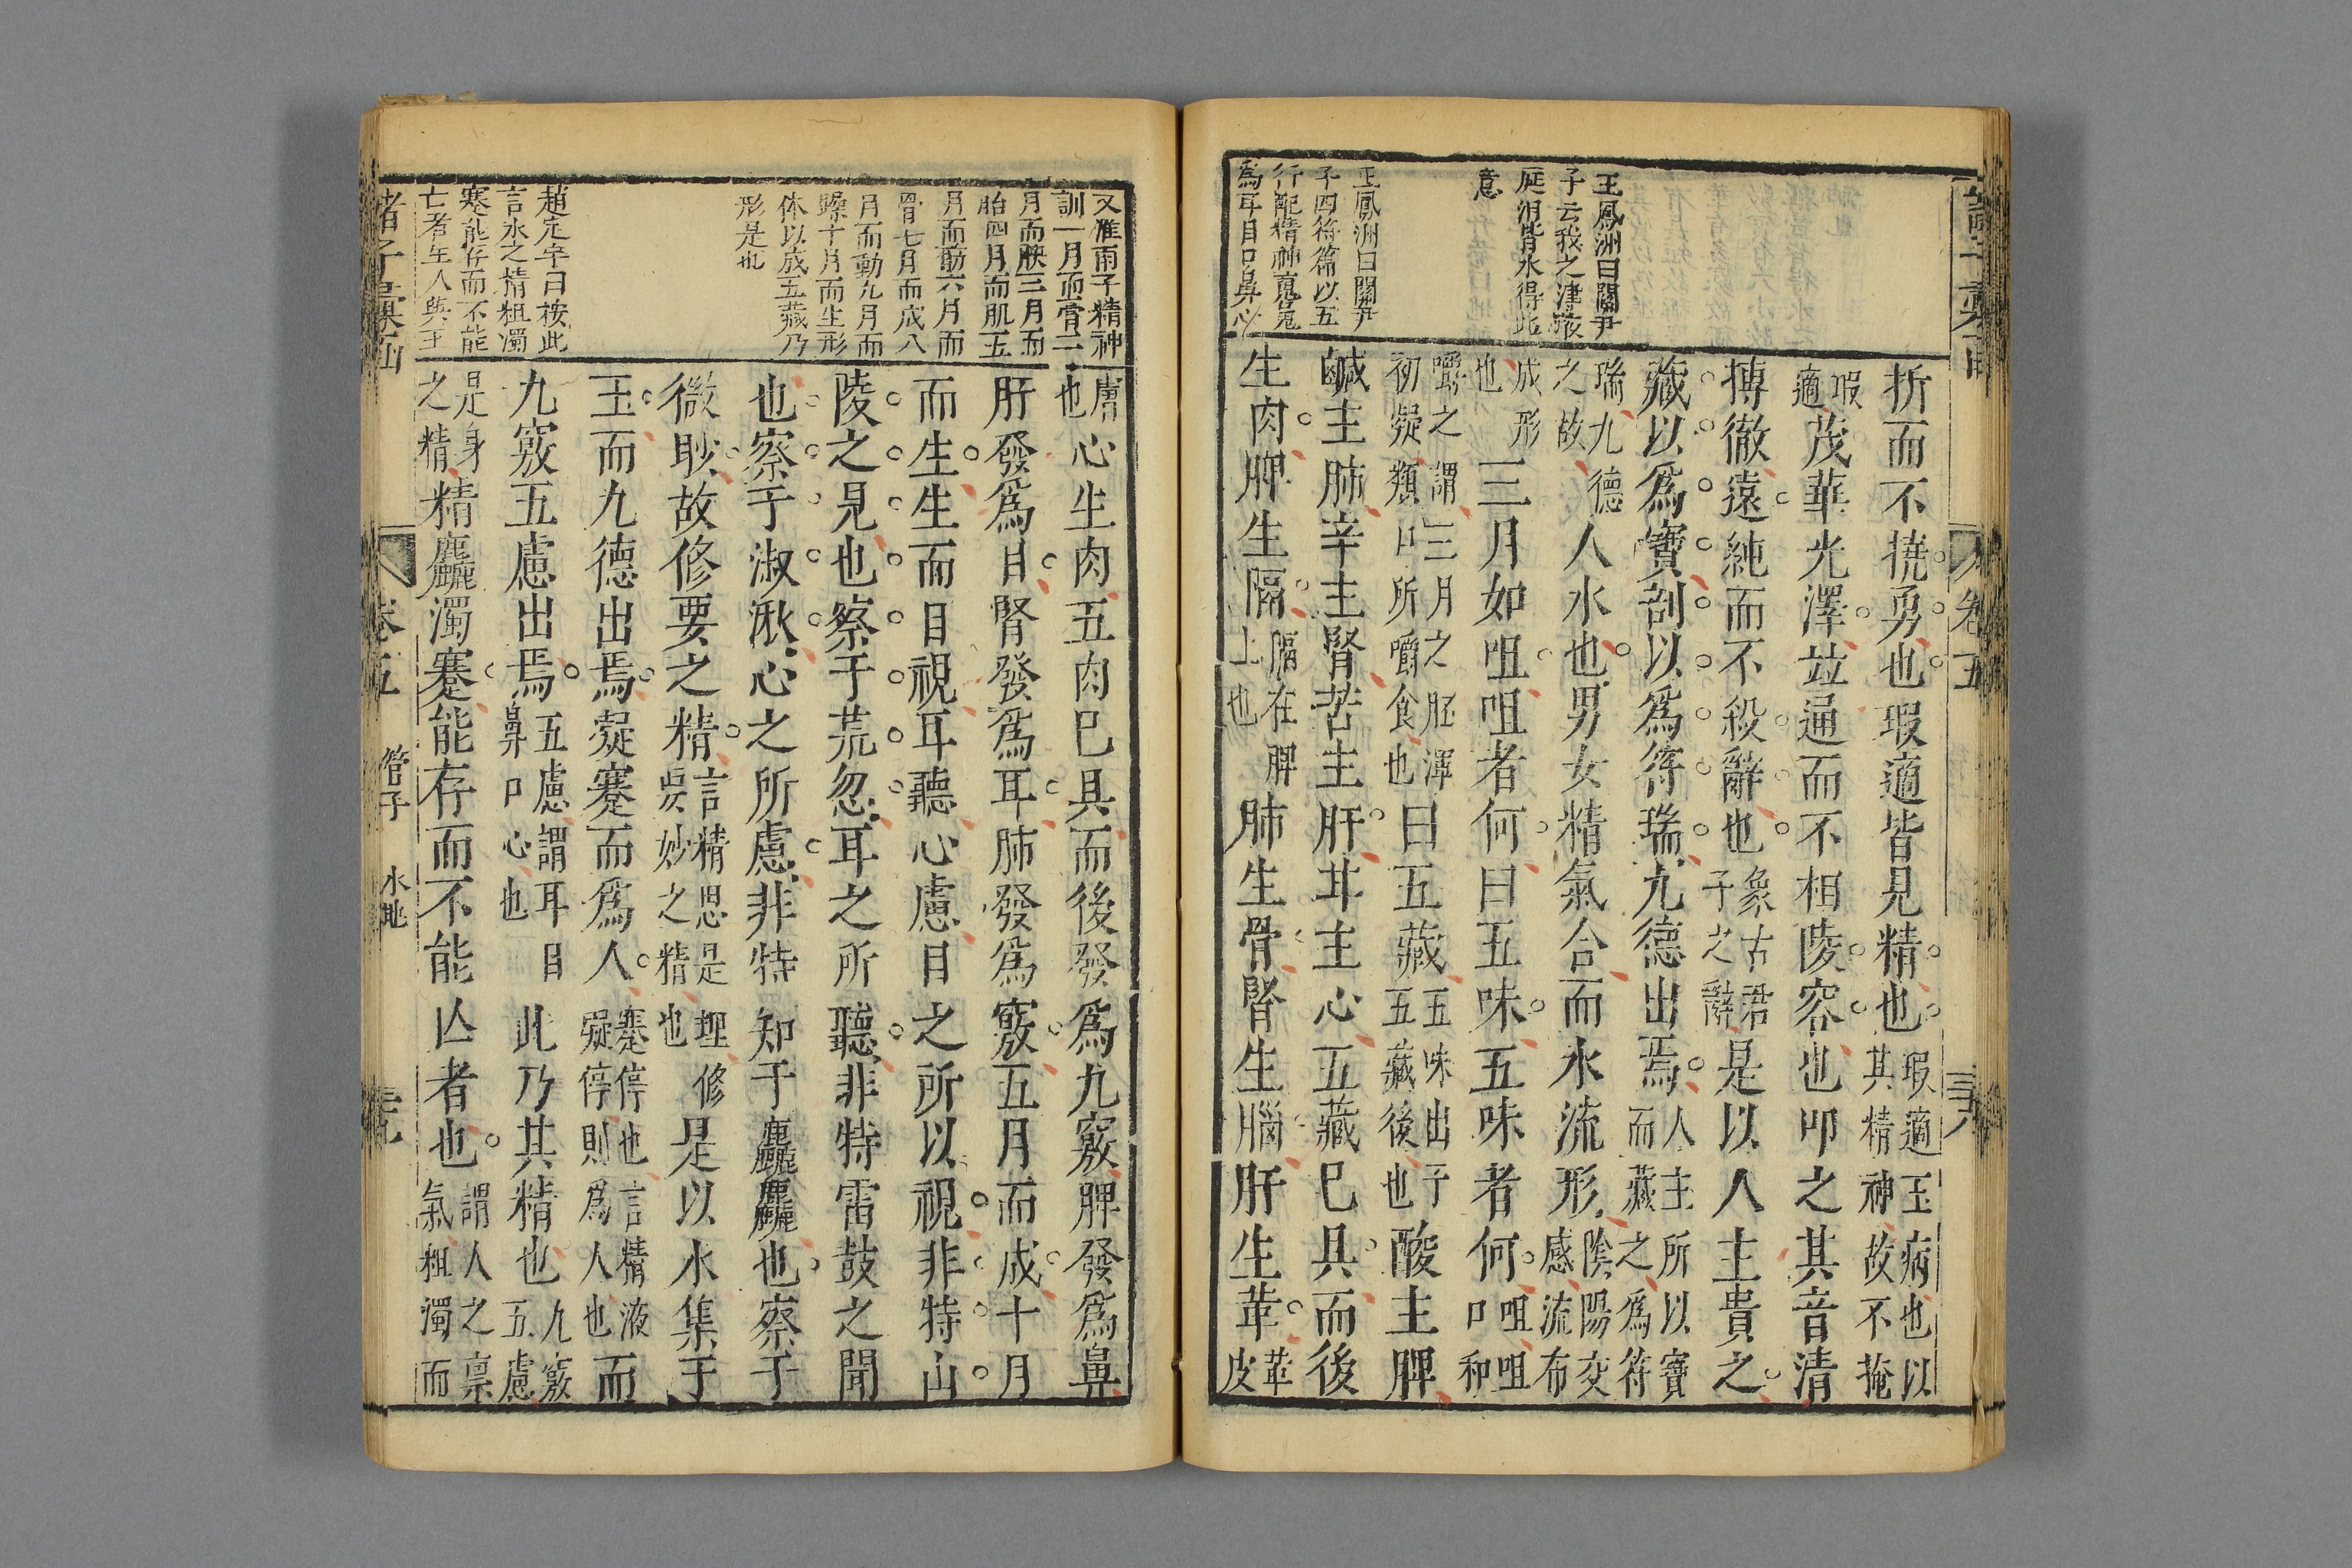 諸子彙函 卷五 三八
王鳳洲曰關尹
子云我之津液
涎泪皆水得此
意
王鳳洲曰關尹
子四符篇以五
行配精神魂魄
爲耳目口鼻心
折而不撓勇也瑕適皆見精也瑕適玉病也以其精神故不掩
瑕適茂華光澤竝通而不相陵容也叩之其音清
摶徹遠純而不殺辭也象古君子之辭是以人主貴之
藏以爲寶剖以爲符瑞九德出焉人主所以寶而藏之爲符
瑞九德之故人水也男女精氣合而水流形陰陽交感流布
成形也三月如咀咀者何曰五味五味者何咀咀口和
嚼之謂三月之胚渾初凝類口所嚼食也曰五藏五味出于五藏後也酸主脾
鹹主肺辛主腎苦主肝甘主心五藏已具而後
生肉脾生隔隔在脾上也肺生骨腎生腦肝生革革皮
又淮南子精神
訓一月而膏二
月而胅三月而
胎四月而肌五
月而筋六月而
骨七月而成八
月而動九月而
躁十月而生形
体以成五藏乃
形是也
趙定宇曰按此
言水之精粗濁
蹇能存而不能
亡者生人與玉
膚也心生肉五肉已具而後發爲九竅脾發爲鼻
肝發爲目腎發爲耳肺發爲竅五月而成十月
而生生而目視耳聽心慮目之所以視非特山
陵之見也察于荒忽耳之所聽非特雷鼓之聞
也察于淑湫心之所慮非特知于麤麤也察于
微眇故修要之精言精思是理修吳妙之精也是以水集于
玉而九德出焉凝蹇而爲人蹇停也言精液凝停則爲人也而
九竅五慮出焉五慮謂耳目鼻口心也此乃其精也九竅五慮
是身之精精麤濁蹇能存而不能亾者也謂人之稟氣粗濁而
諸子彙函 卷五 管子 水地 三九